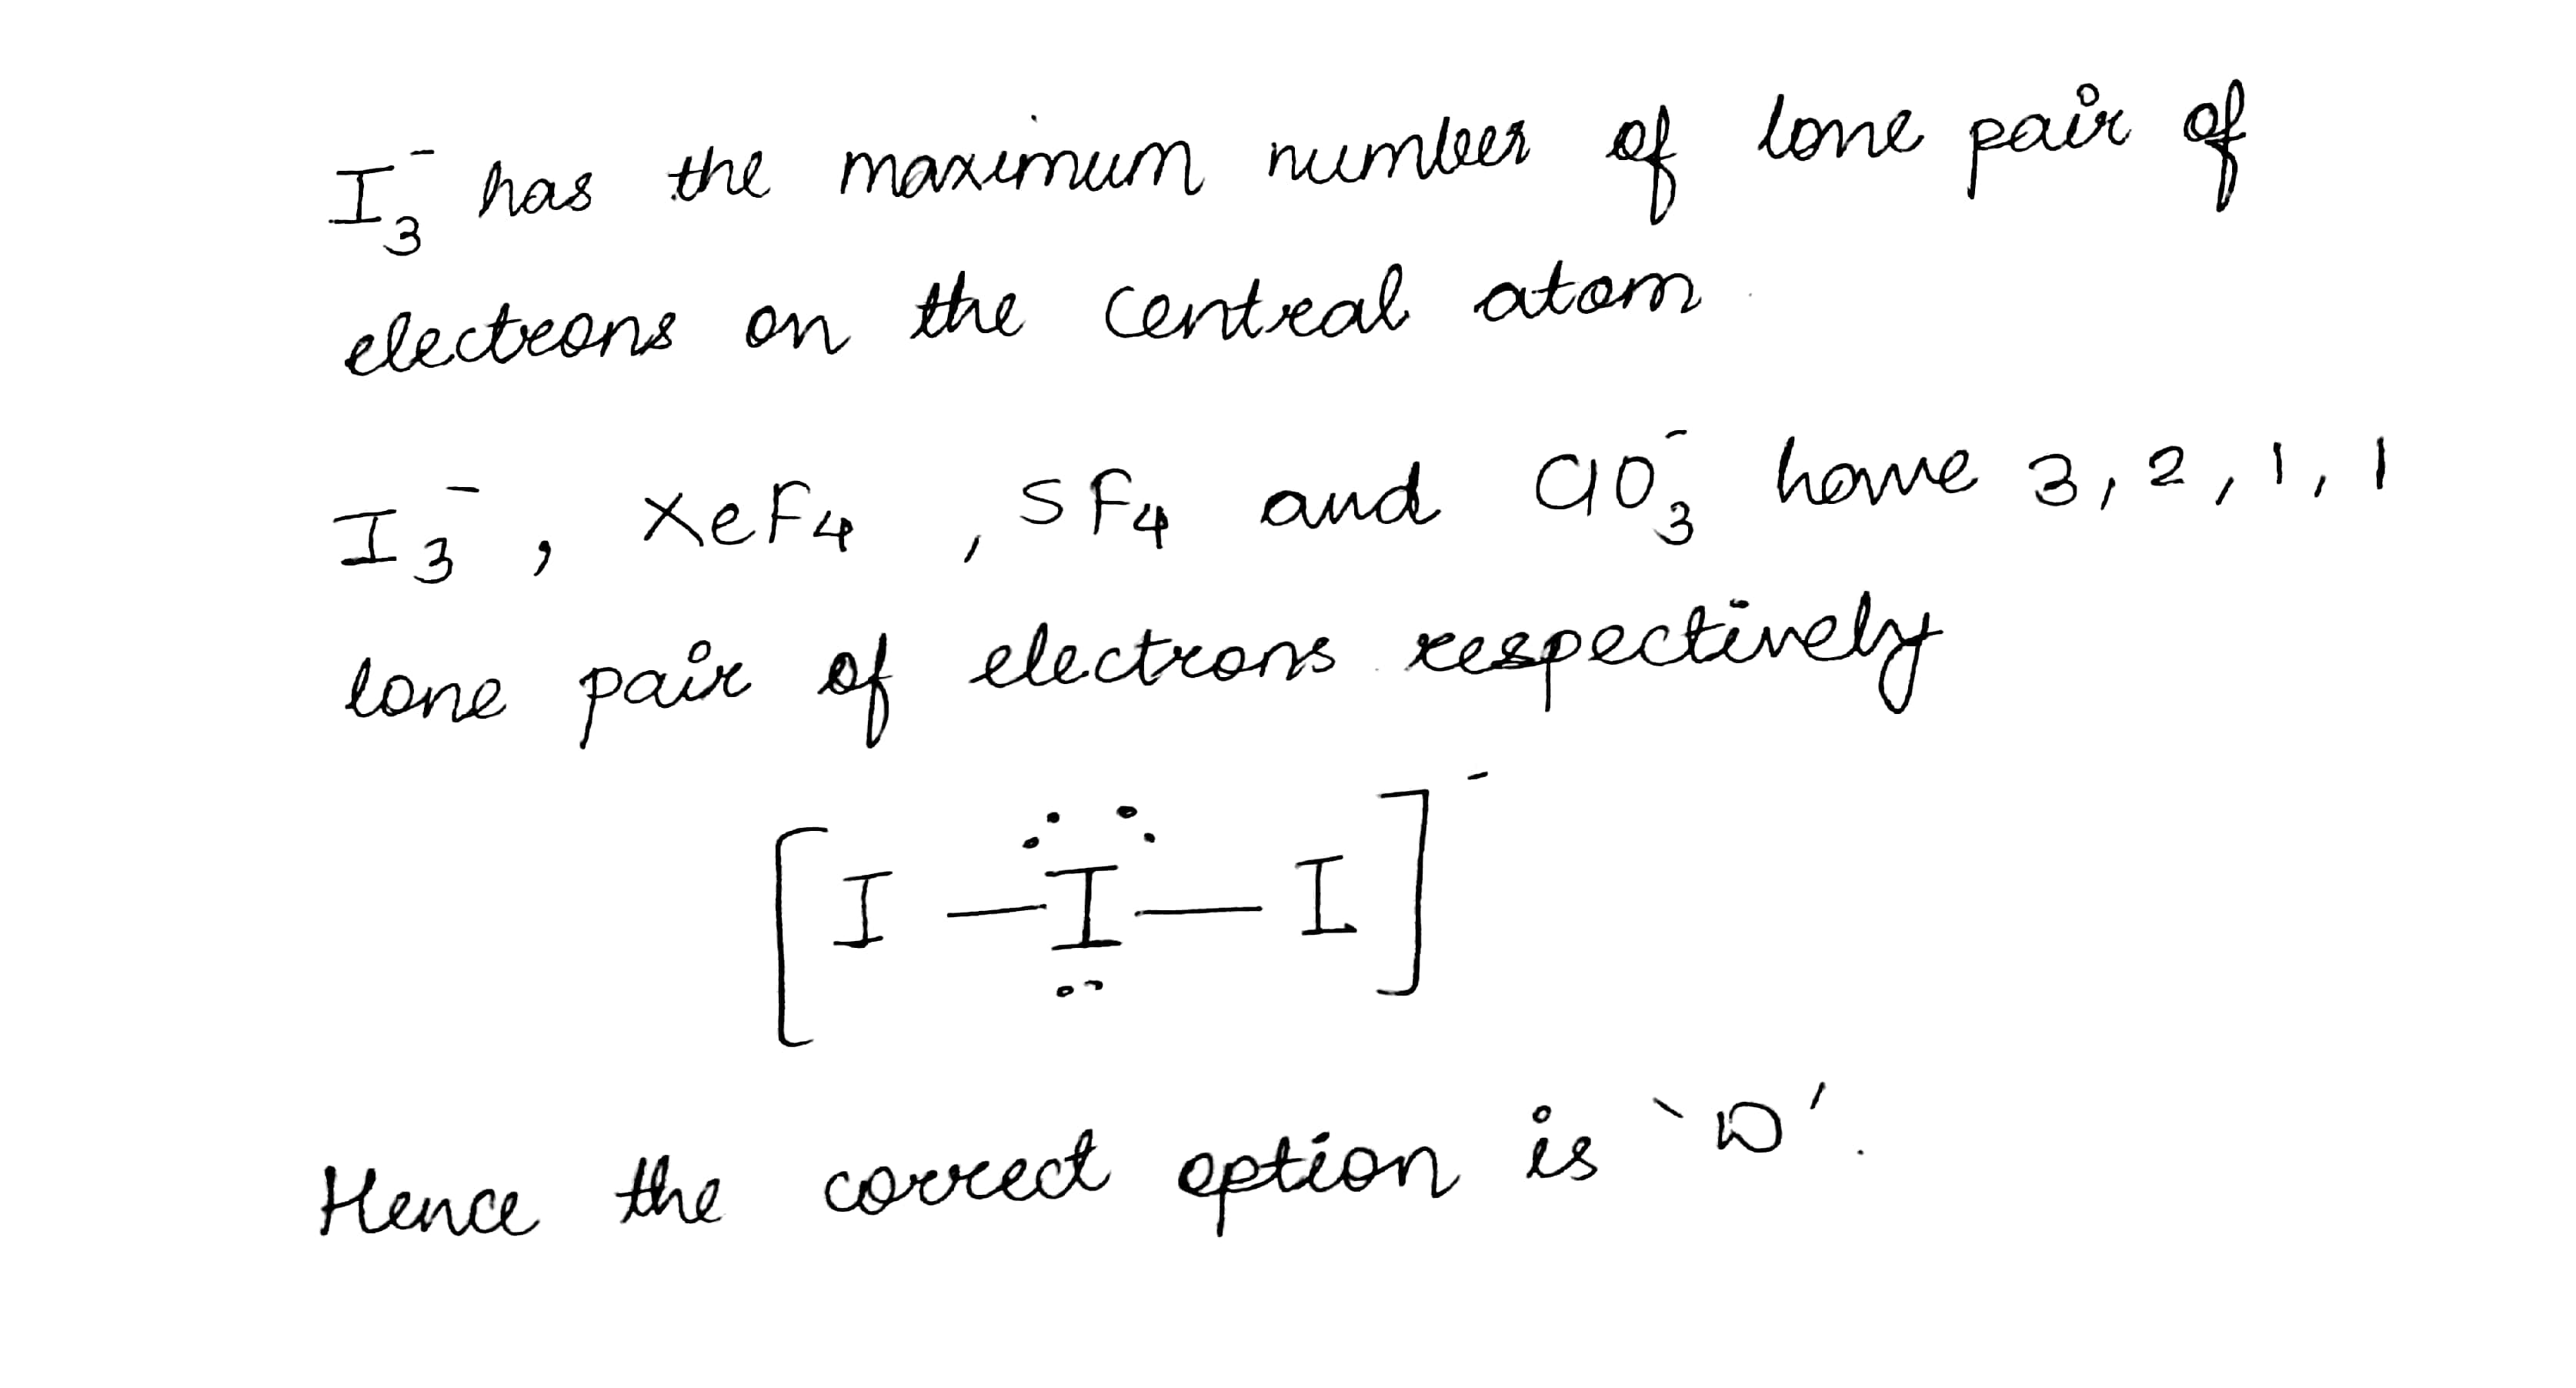 I₃⁻ has the maximum number of lone pair of
electrons on the central atom
I₃⁻, XeF₄, SF₄ and ClO₃⁻ have 3, 2, 1, 1
lone pair of electrons respectively
[I—I—I]⁻
Hence the correct option is ‘D’.